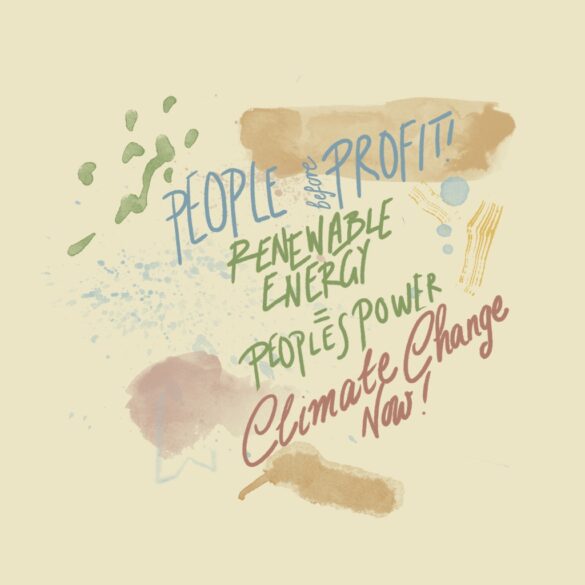 PEOPLE before PROFIT!
RENEWABLE
ENERGY
=
PEOPLES POWER
Climate Change
Now!